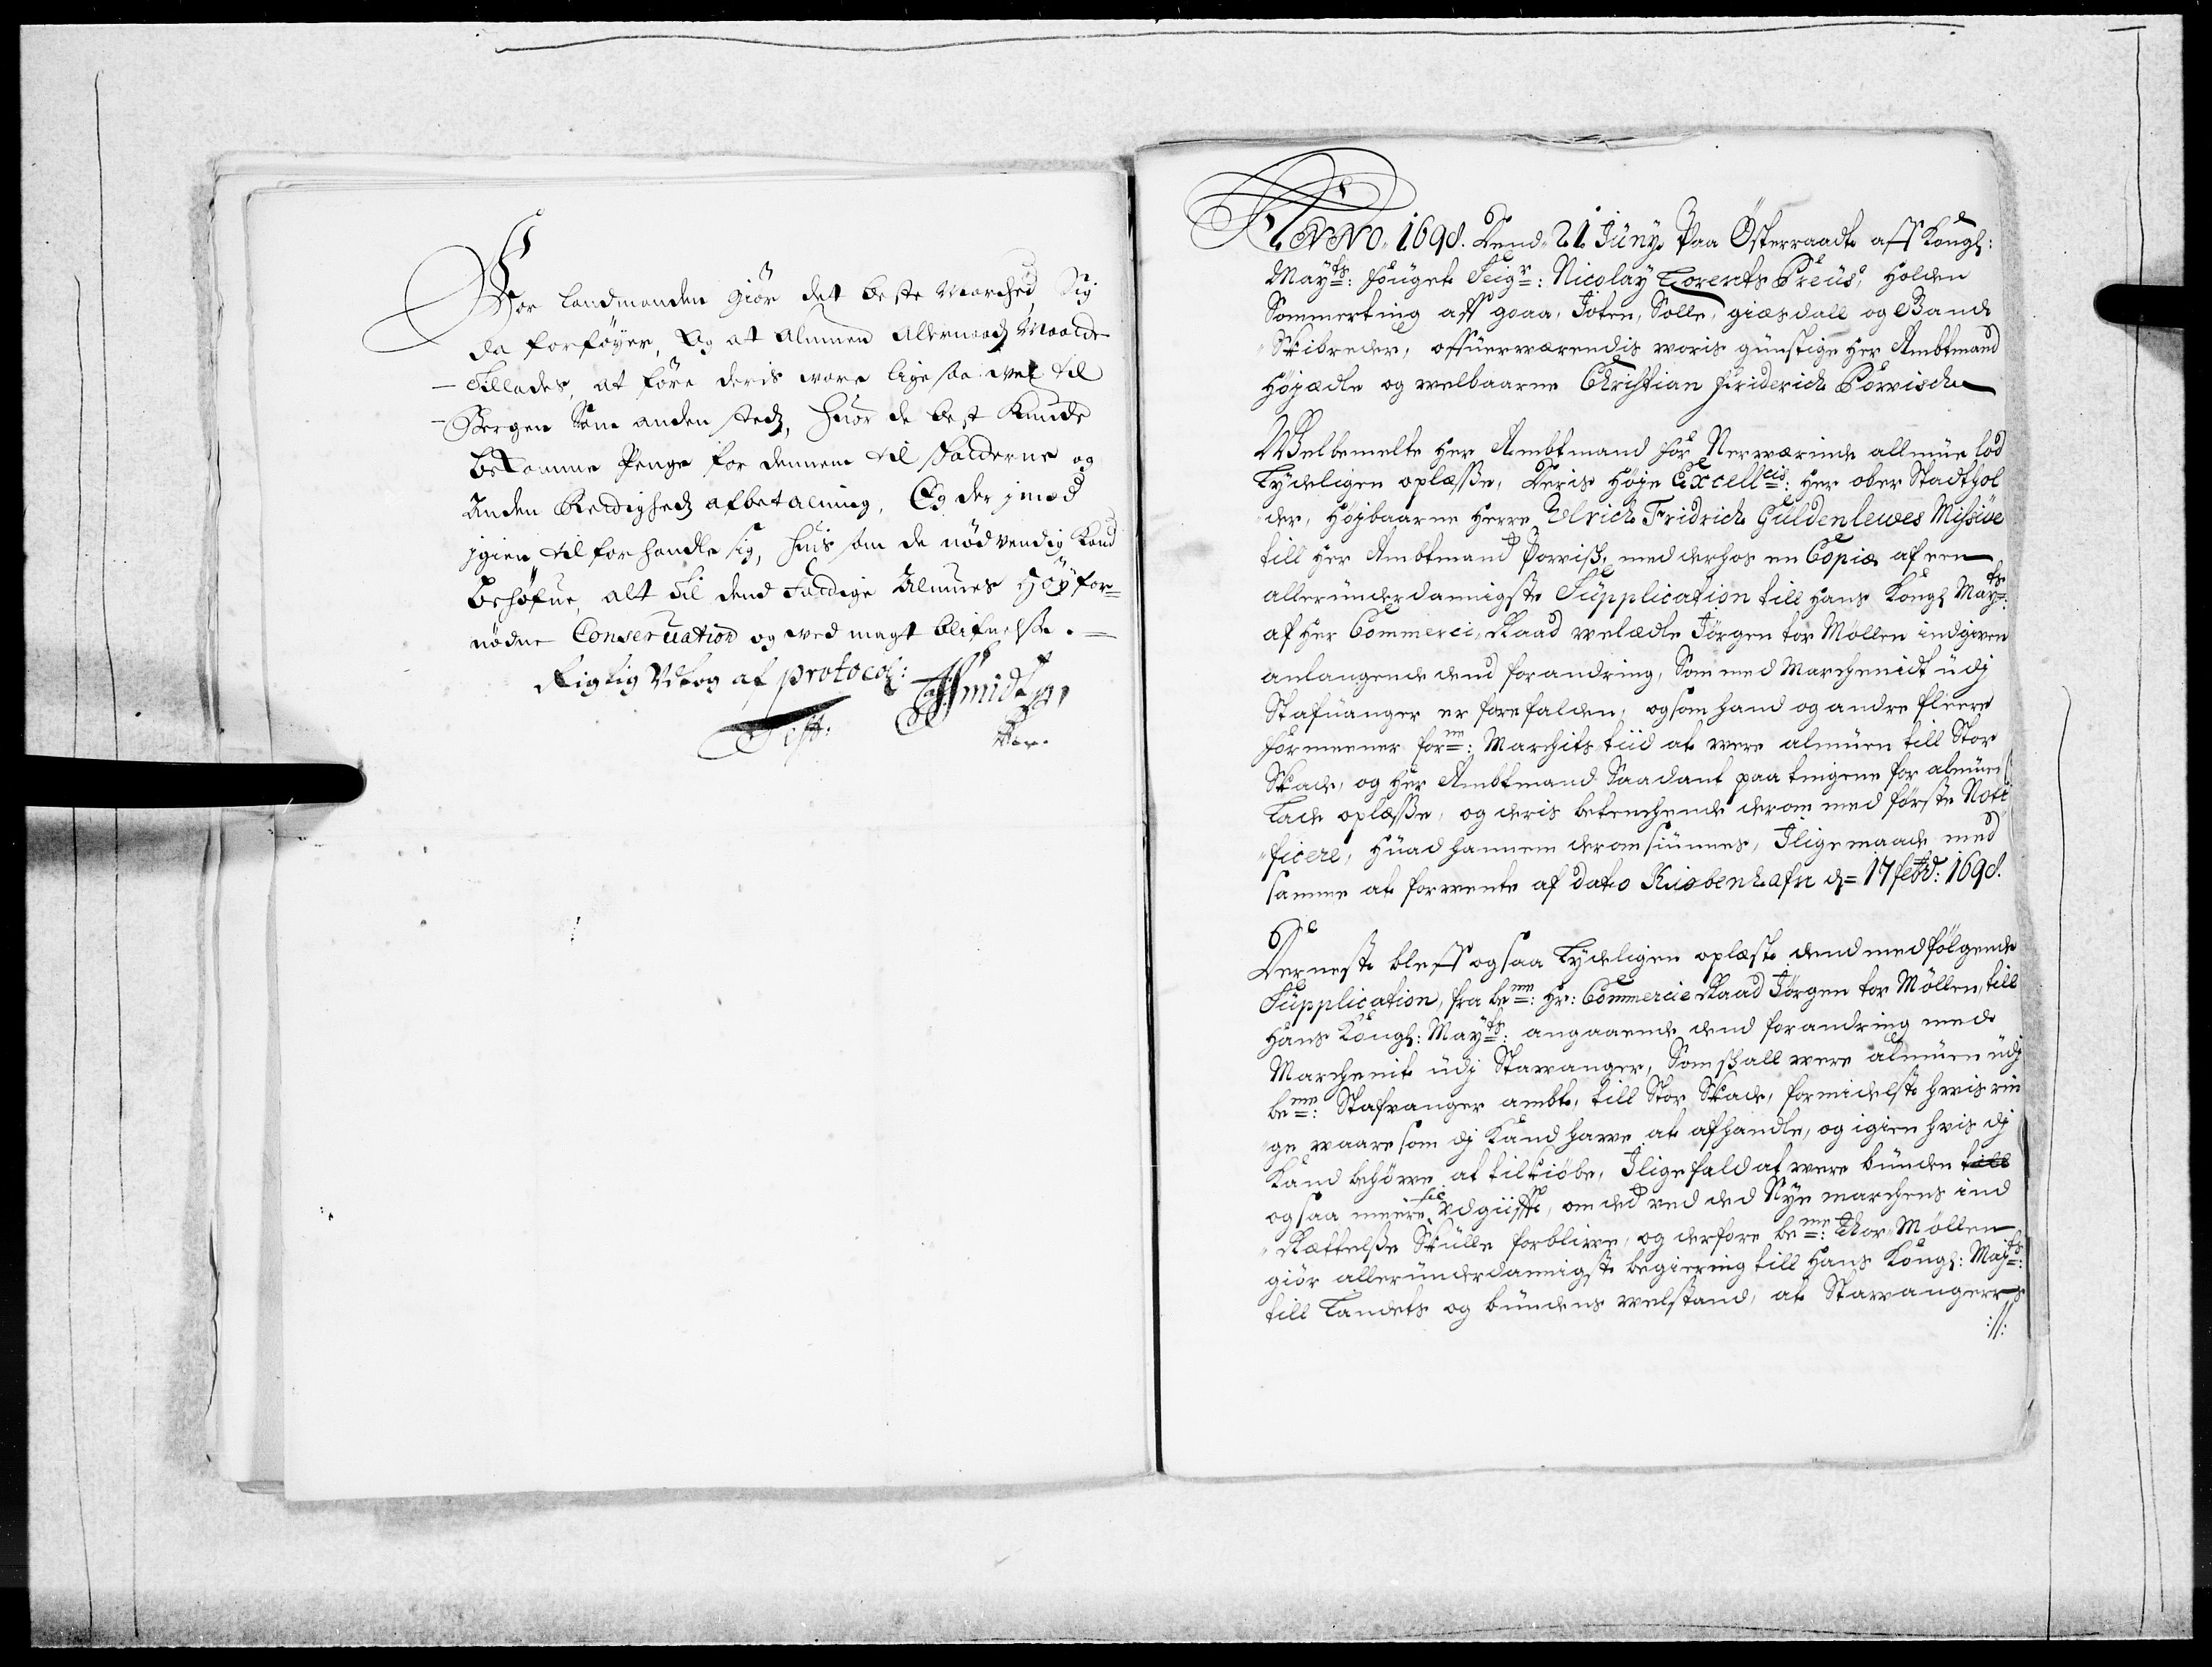 For landmanden giör det beste Marched, Sig
da forföyer, Og at almuen allernaad Maatte
Tillades, at före deris vare ligesaa vel til
Bergen Som anden sted, huor de best Kunde
bekomme Penge for dennem til skatternes og
anden Rettighed afbetalning, Og der jmod
jgien til forhandle sig, huis som de nödvendig Kand
behöfue, alt Til dend fattige Almues Höyfor=
nödne Conseruation og ved magt blifuelse.
Rigtig Vdtog af protocol:
Test.
ANNO. 1698. Dend. 21 Juny. Paa Østerraadt aff Kongl:
Mayts: fouget Seigr: Nicolay Lorents Preüs, holden
Sommerting aff goaa, Joten, Solle, giæsdall og Bands
Skibreder, offuerwærendis woris günstige Her Ambtmand
Høyædle og welbaarne Christian friderich Powisch
Welbemelte Her Ambtmand for Nerwærende allmue lod
Tydeligen oplæsse, Deris Høye Excellcis: Her ober Stadthol
der, Højbaarne Herre Ulrich Fridrich Güldenlewes Missive
till Her Ambtmand Powisch, med derhos en Copiæ af een
alleründerdannigste Süpplication till Hans Kongl Mayts:
af Her Commerci-Raad welædle Jörgen tor Möllen indgiven
anlangende dend forandring, Som med Marchenidt üdj
Stafüanger er forefalden, og som hand og andre fleere
formeener forne: Marchits tiid at were almüen till Stor
Skade, og Her Ambtmand Saadant paa tingene for almüen
Lade oplæsse, og deris betenchende derom med förste Noti
ficere, Hüad hannem derom siünnes, Jligemaade med
samme at forwente af dato Kiøbenhafn d= 17 febr: 1698.
Dernest bleff ogsaa Tydeligen oplæst dend medfölgende
Süpplication, fra bente: Hr: Commercie Raad Jörgen tor Möllen, till
Hans Kongl: Mayts: angaaende dend forandring med
Marchenit üdj Stawanger, Som skall were almüen üdj
bente: Stafvanger ambt, till Stor Skade, formidelst hvis rin
ge waare som dj Kand hawe at afhandle, og igien hvis dj
Kand behöwe at tilkiöbe, Jligefald at were bünden till
ogsaa meere til Vdgiifft, om det ved det Nye marchens ind
Rættelsse Skulle forblive, og derfore bente: Thor Möllen
giör alleründerdannigst begiering till Hans Kongl: Mayts:
till Landets og bündens welstand, at Stawangers
://: